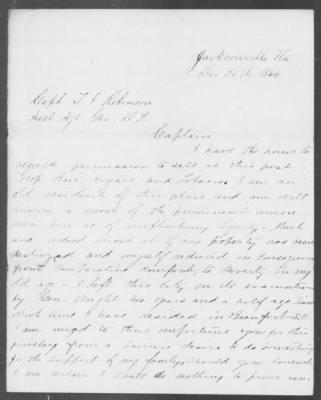 Jacksonville Fla
Dec 30th 1864
Capt T. J Robinson
Asst. Agt. Gen. D. F.
Captain
I have the honor to
request permission to sell at this post
Beer, Cigars, and Tobacco. I am an
old resident of this place and am well
known to most of the prominent union
men here as of unflinching loyalty. Much
and indeed most all of my property has been
destroyed and myself reduced in consequence
from comparative comfort to poverty in my
old age. I left this city on its evacuation
by Gen. Wright two years and a half ago since
which time I have resided in Beaufort S.C
I am urged to thus importune you for this
privilege from a sincere desire to do something
for the support of my family, should you consent
I am certain I shall do nothing to prove un-